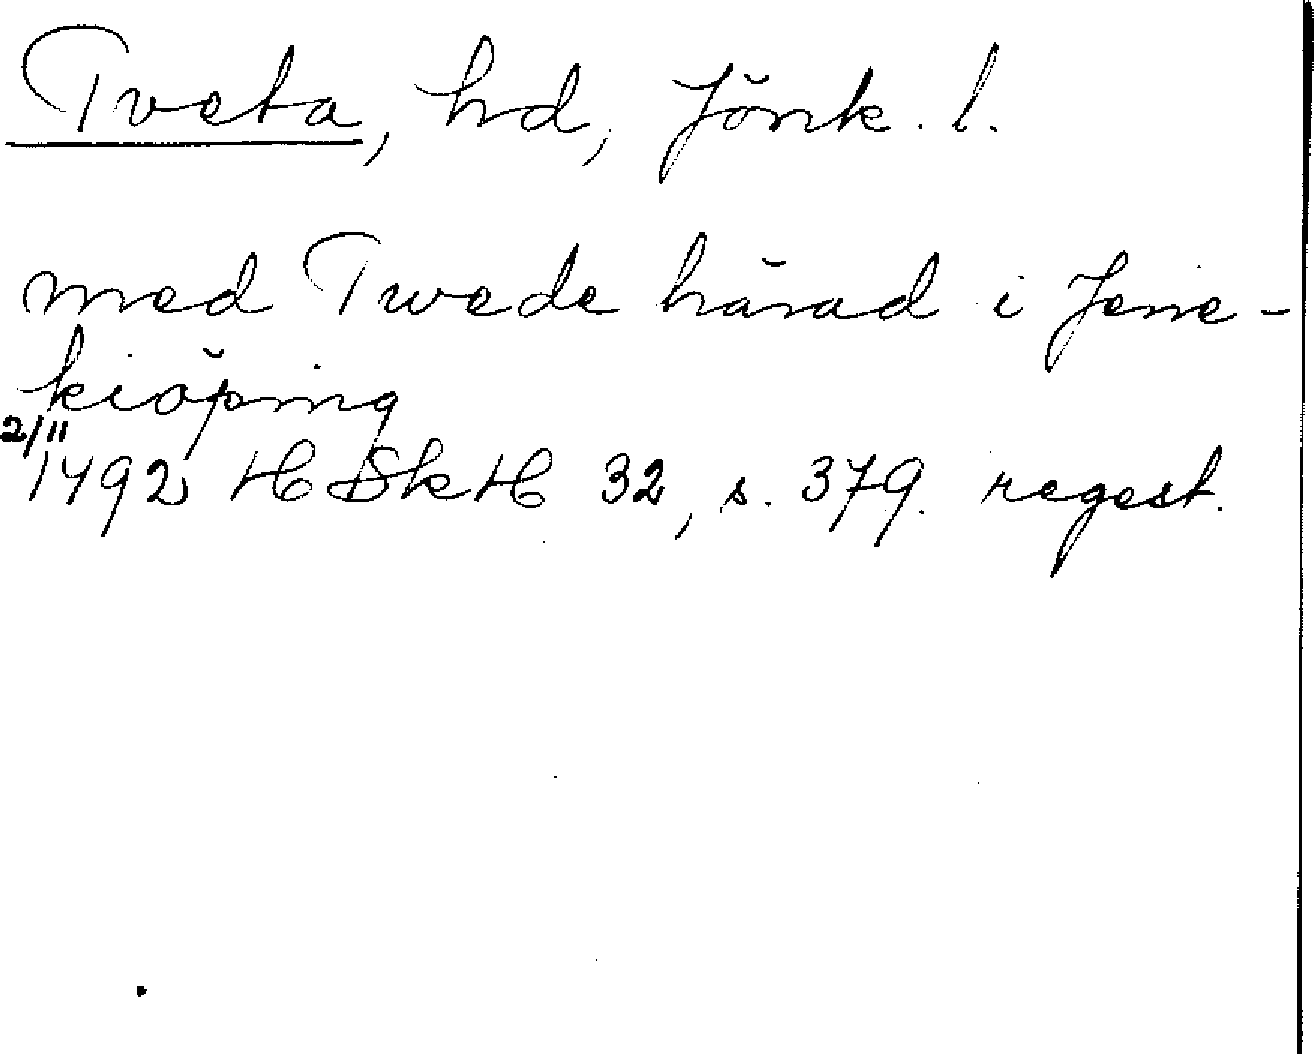 Tveta, hd, Jönk. l.
med Twede härad i Jene-
kiöping
2/11
1492 HSkH 32, s. 379. regest.